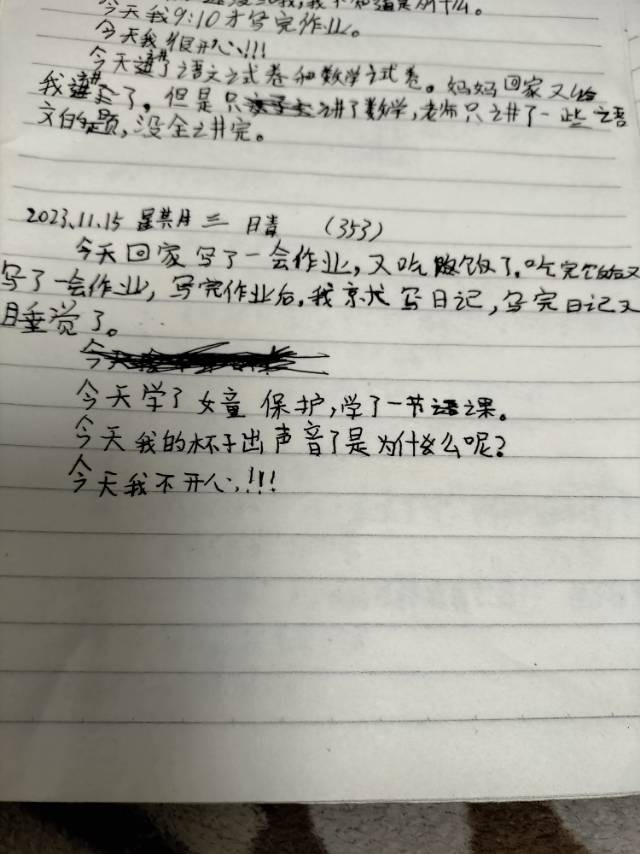 我,我不知道是为什么。
今天我9:10才写完作业。
今天我很开心!!!
今天讲了语文试卷和数学试卷。妈妈回家又给
我讲了。但是只讲了数学,老师只讲了一些语
文的题,没全讲完。
2023.11.15 星期三 晴 (353)
今天回家写了一会作业,又吃晚饭了。吃完饭后又
写了一会作业,写完作业后,我就写日记,写完日记又
睡觉了。
今天学了女童保护,学了一节课。
今天我的杯子出声音了是为什么呢?
今天我不开心,!!!